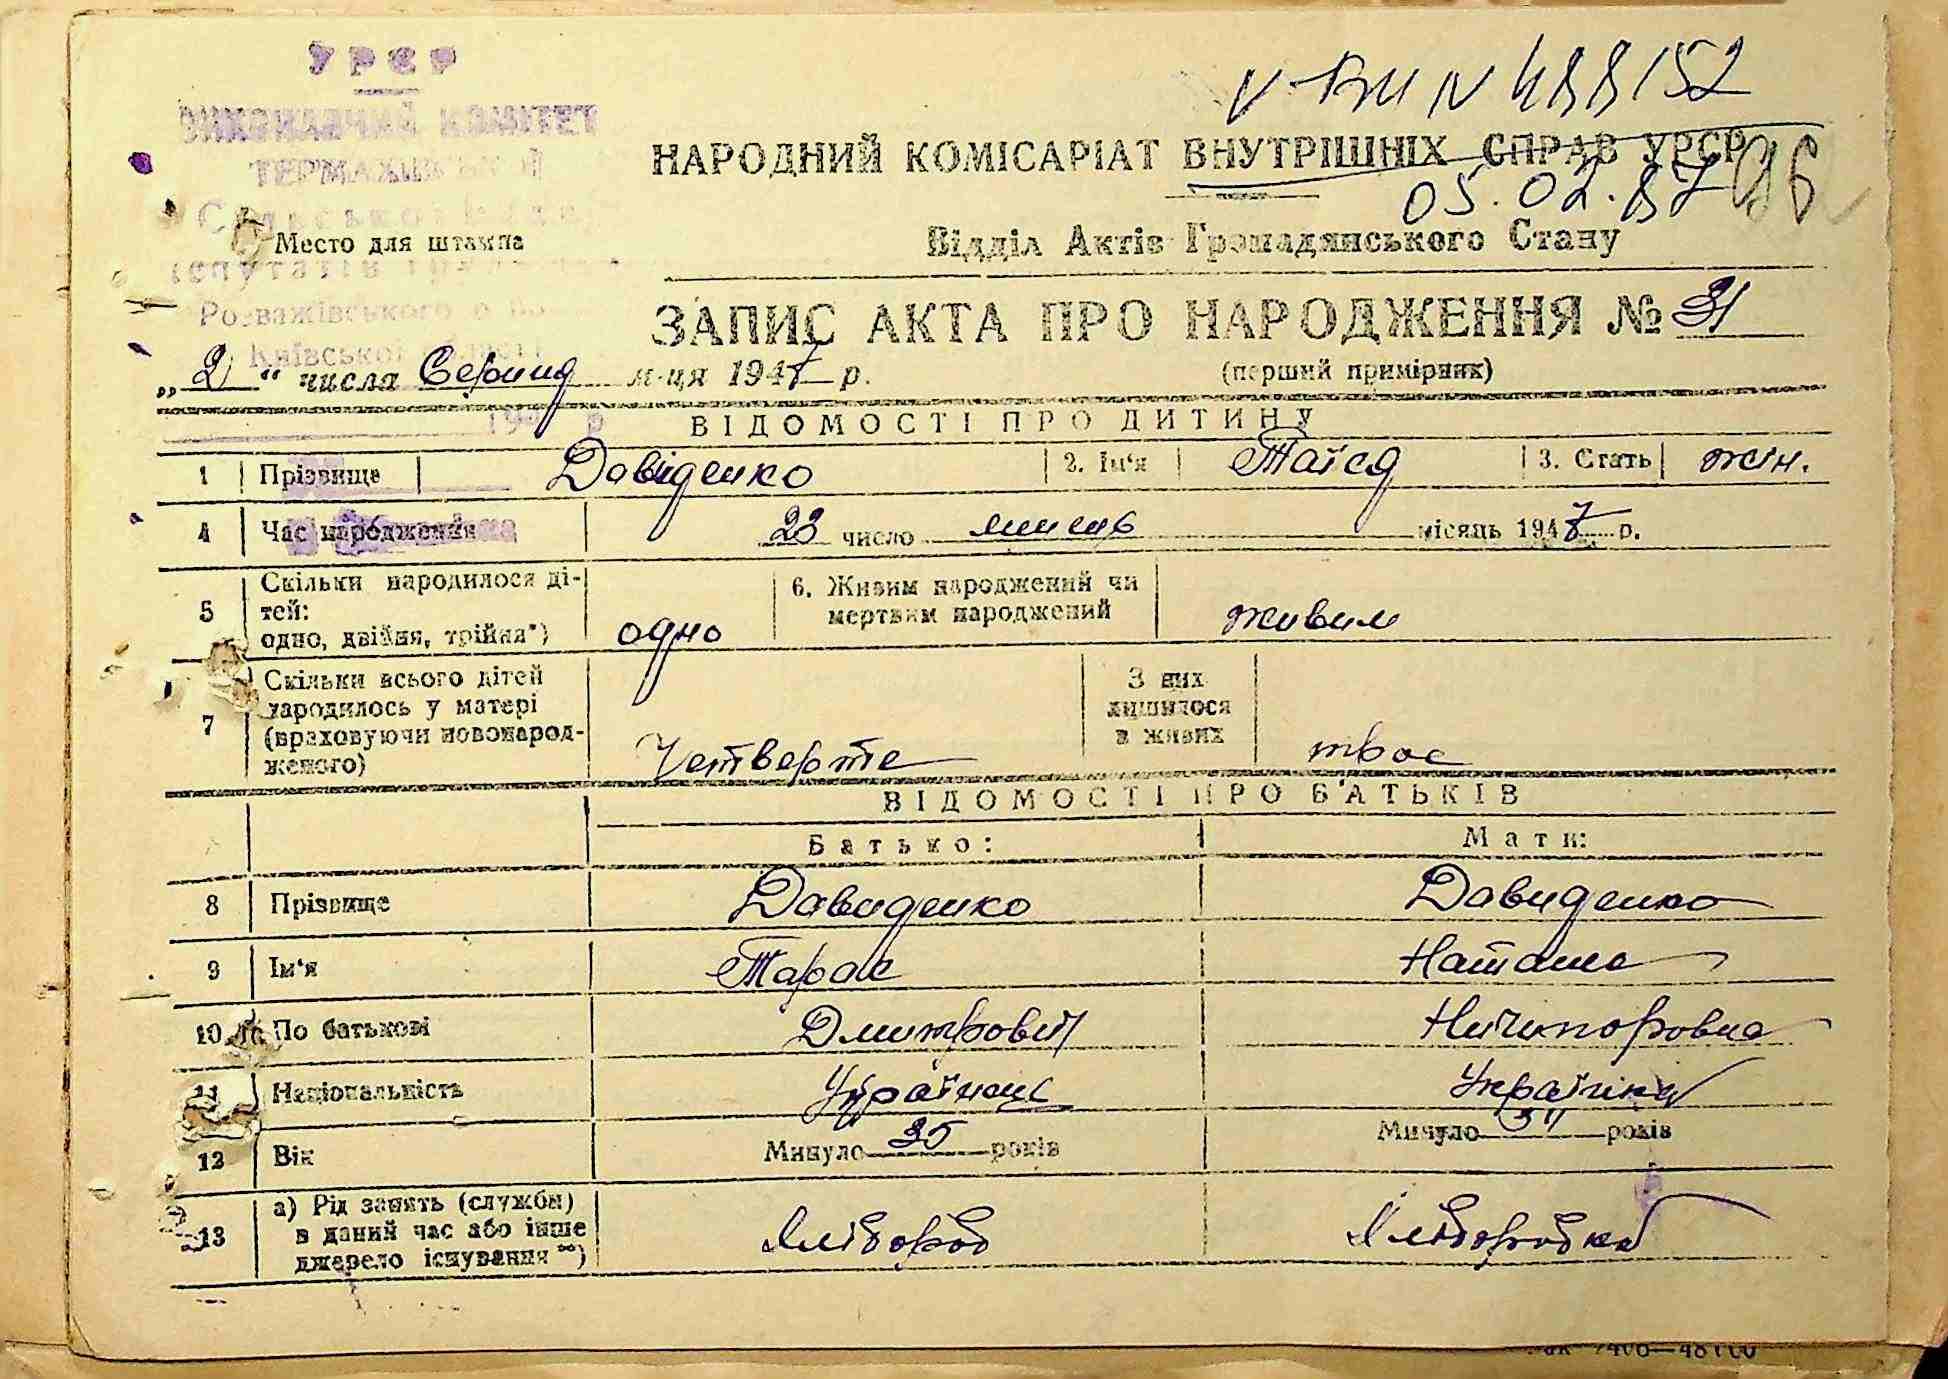 УРСР
ВИКОНАВЧИЙ КОМІТЕТ
ТЕРМАХІВСЬКОЇ
V-БИ N 488152
НАРОДНИЙ КОМІСАРІАТ ВНУТРІШНІХ СПРАВ УРСР
96
05.02.87
Место для штампа
Відділ Актів Громадянського Стану
Розважівського
Київської області
ЗАПИС АКТА ПРО НАРОДЖЕННЯ № 31
„2“ числа Серпня м-ця 1947 р.
(перший примірник)
ВІДОМОСТІ ПРО ДИТИНУ
1 Прізвище Давиденко 2. Ім‘я Таїся 3. Стать жін.
4 Час народження 23 число липень місяць 1947 р.
5 Скільки народилося ді-
тей:
одно, двійня, трійня*) одно
6. Живим народжений чи
мертвим народжений живим
7 Скільки всього дітей
народилось у матері
(враховуючи новонарод-
женого) Четверте
З них
лишилося
в живих троє
ВІДОМОСТІ ПРО БАТЬКІВ
Батько: Мати:
8 Прізвище Давиденко Давиденко
9 Ім‘я Тарас Наташа
10 По батькові Дмитрович Ничипоровна
11 Національність Українець Українка
12 Вік Минуло 35 років Минуло 34 років
13 а) Рід занять (служби)
в даний час або інше
джерело існування **) Хлібороб Хліборобка